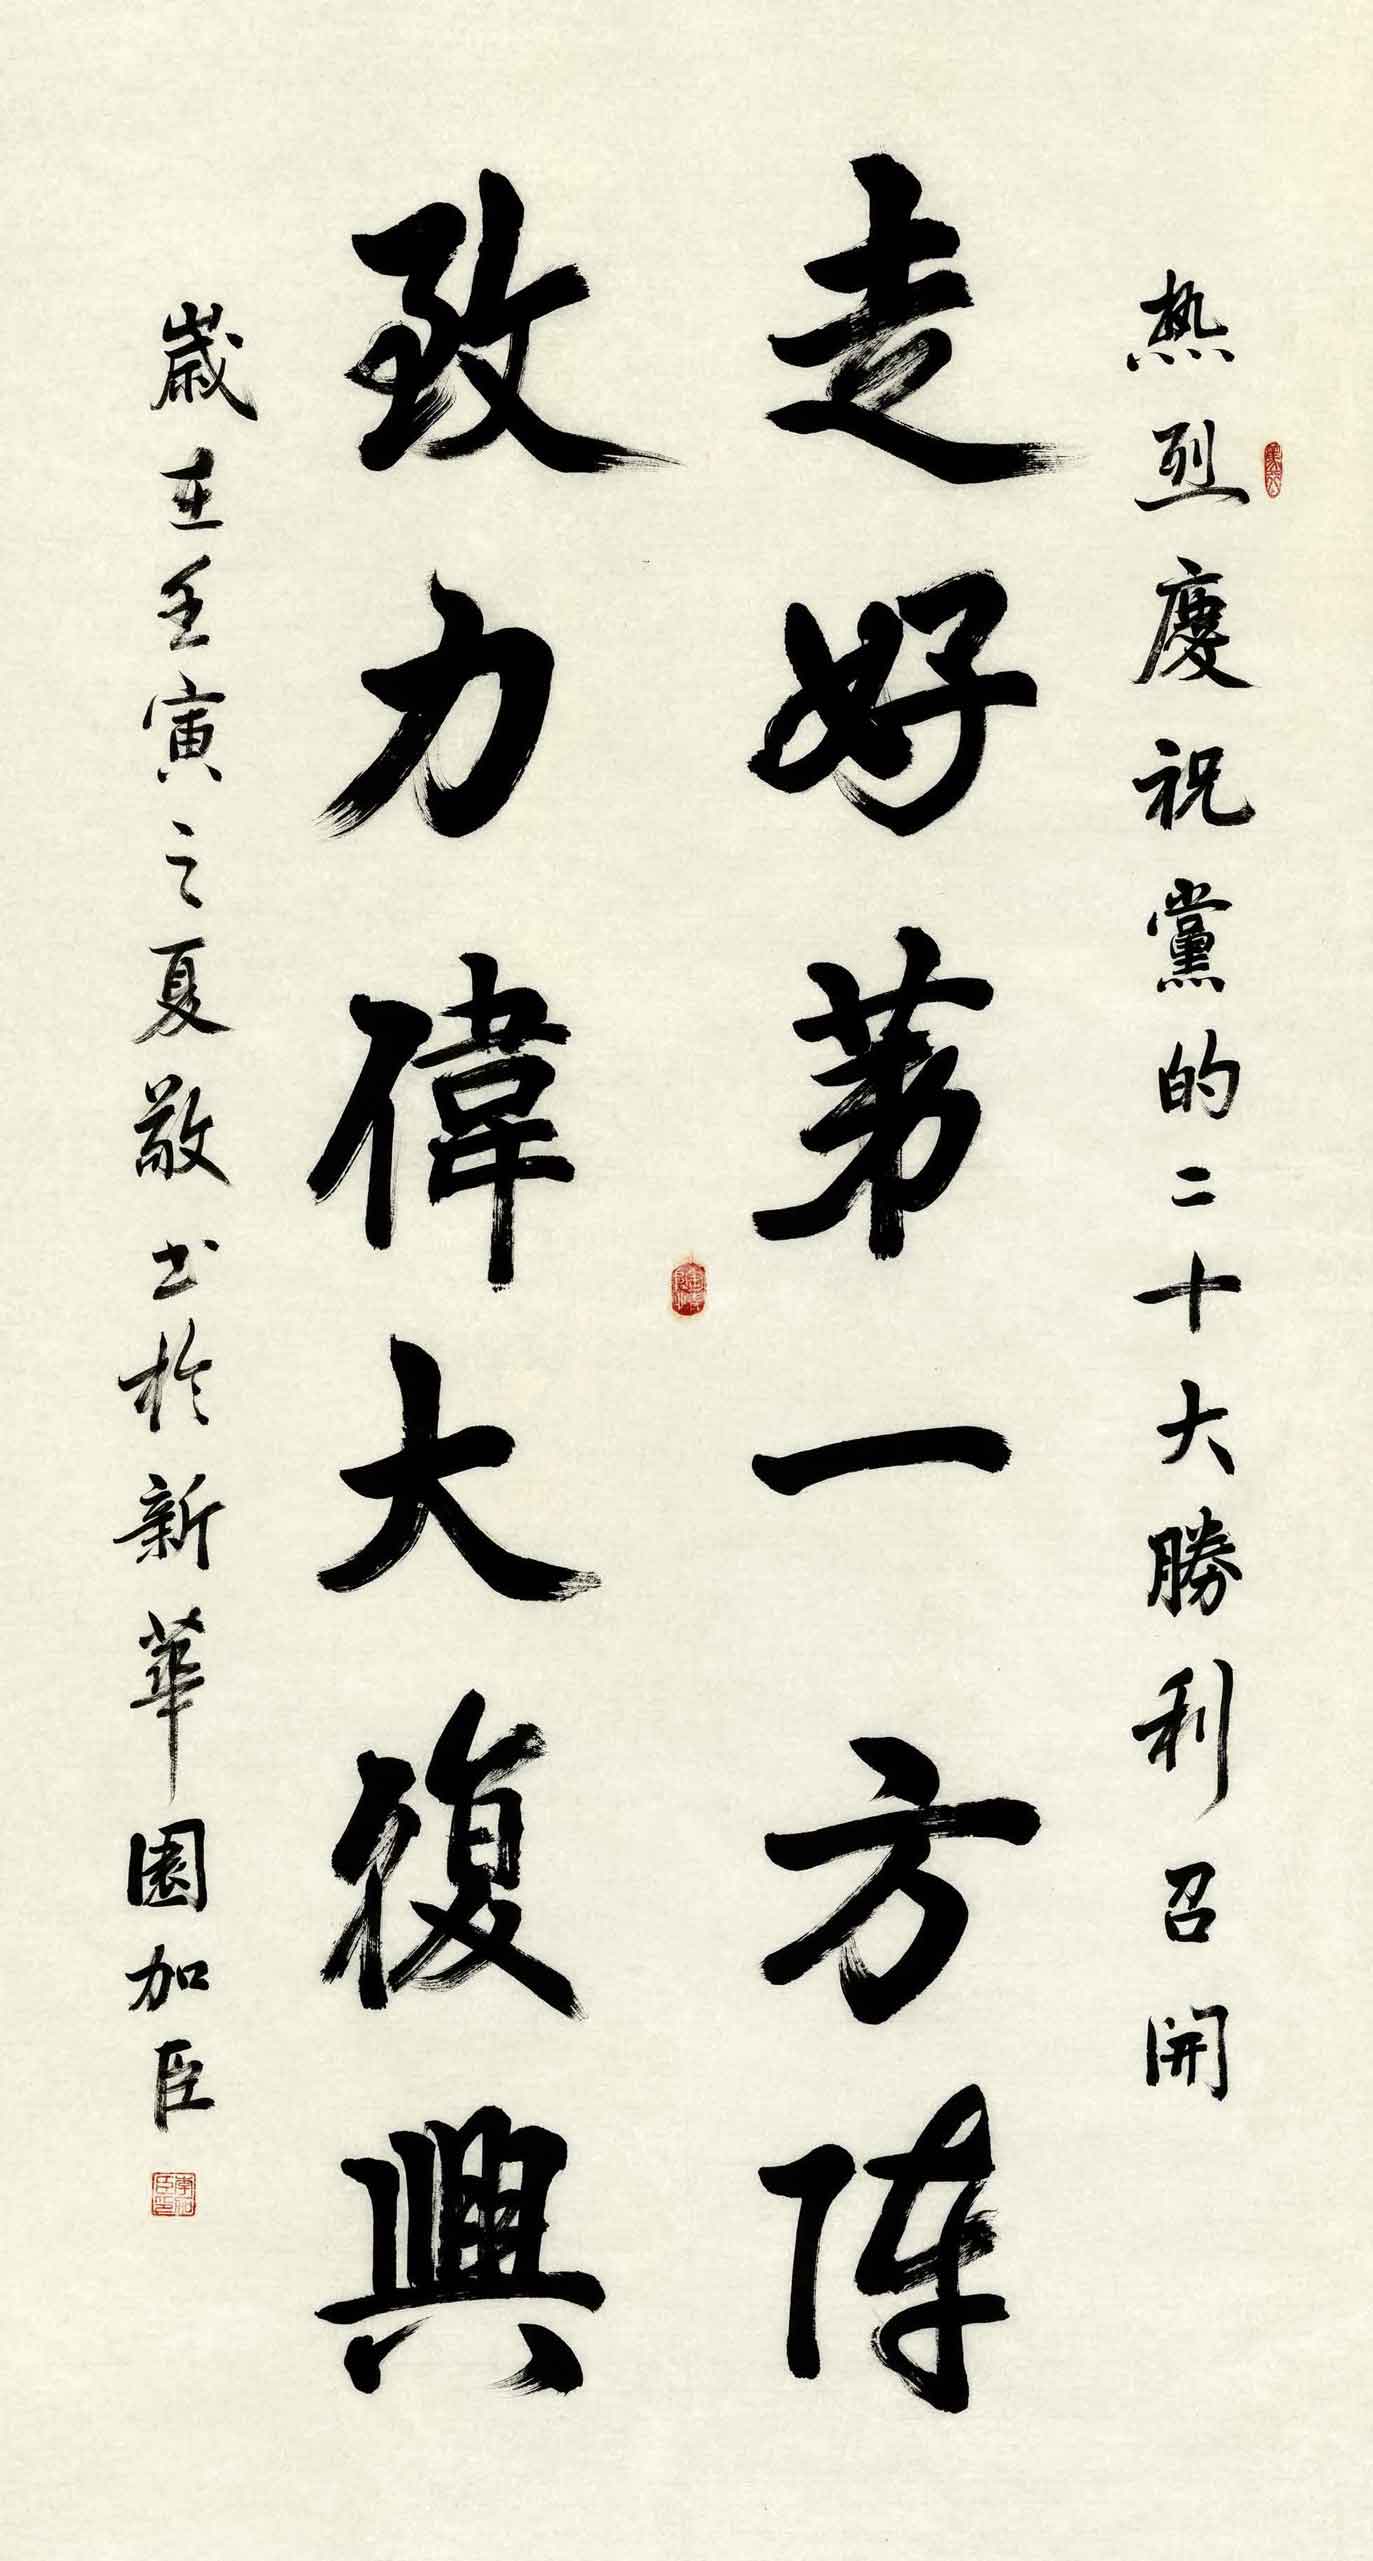 热烈慶祝黨的二十大勝利召開
走好第一方阵
致力偉大復興
歲在壬寅之夏敬书於新華園加臣